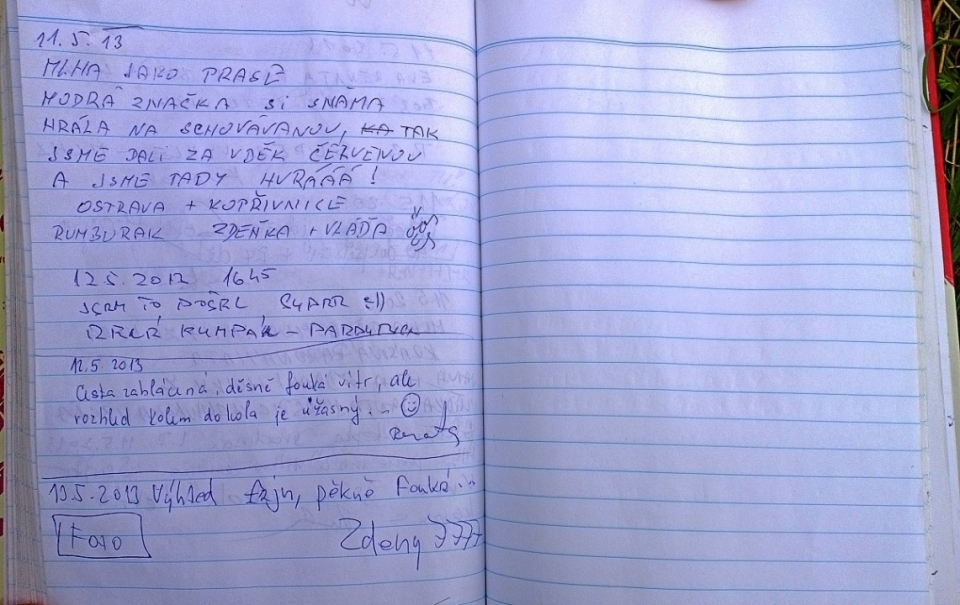 11.5.13
MLHA JAKO PRASE
MODRÁ ZNAČKA SI S NÁMA
HRÁLA NA SCHOVÁVANOU, KA TAK
JSME DALI ZA VDĚK ČERVENOU
A JSME TADY HURÁÁÁ!
OSTRAVA + KOPŘIVNICE
RUMBURAK ZDEŇKA + VLÁĎA
12.5.2013 1645
JSEM TO
KUMPÁN - PARDUBICE
12.5 2013
Cesta zablácená, děsně fouká vítr, ale
rozhled kolem dokola je úžasný... ☺
Renata
19.5.2013 Výhled fajn, pěkně fouká...
FOTO
Zdeny